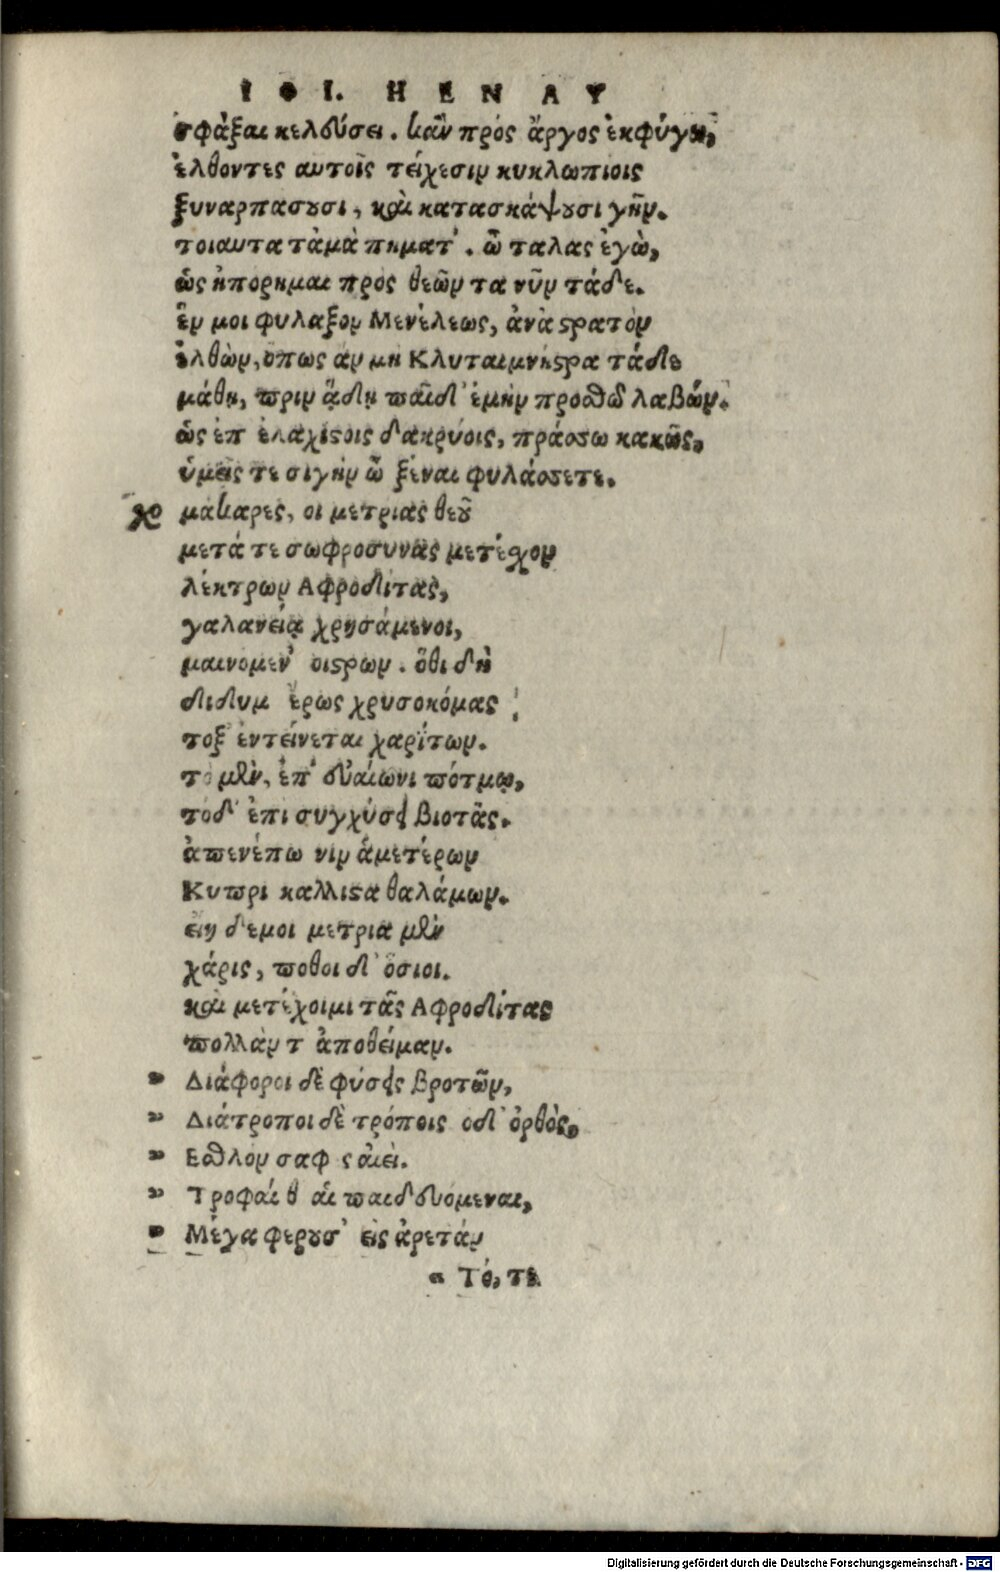 ΙΦΙ. Η ΕΝ ΑΥ
σφάξαι κελεύσει. κἂν πρὸς ἄργος ἐκφύγω,
ἐλθοντες αυτοῖς τείχεσιν κυκλωπιοις
ξυναρπασουσι, καὶ κατασκάψουσι γῆν.
τοιαυτα τἀμὰ πηματ'. ὦ ταλας ἐγὼ,
ὡς ἠπορημαι προς θεῶν τα νῦν τάδε.
ἓν μοι φυλαξον Μενέλεως, ἀνὰ στρατὸν
ἐλθὼν, ὁπως αν μη Κλυταιμνήστρα τάδε
μάθῃ, πριν ᾅδῃ παῖδ' ἐμὴν προσθῶ λαβών.
ὡς ἐπ ἐλαχίστοις δακρύοις, πράσσω κακῶς,
ὑμεῖς τε σιγὴν ὦ ξέναι φυλάσσετε.
χο μάκαρες, οι μετριας θεοῦ
μετά τε σωφροσυνας μετέχον
λέκτρων Αφροδίτας,
γαλανείᾳ χρησάμενοι,
μαινομεν' οιστρων. ὅθι δὴ
διδυμ ἔρως χρυσοκόμας
τοξ ἐντείνεται χαρίτων.
το μὲν, ἐπ' εὐαίωνι πότμῳ,
τοδ' ἐπι συγχύσει βιοτᾶς.
ἀπενέπω νιν ἁμετέρων
Κυπρι καλλιστα θαλάμων.
εἴη δ'εμοι μετρια μὲν
χάρις, ποθοι δ' ὅσιοι.
καὶ μετέχοιμι τᾶς Αφροδίτας
πολλὰν τ ἀποθείμαν.
" Διάφοροι δὲ φύσεις βροτῶν,
" Διάτροποι δὲ τρόποις οδ' ὀρθὸς,
" Εσθλον σαφ ς αἰεὶ.
" Τροφαί θ αἱ παιδευόμεναι,
" Μέγα φερουσ' εἰς ἀρετάν
" Τό, τε
Digitalisierung gefördert durch die Deutsche Forschungsgemeinschaft - DFG